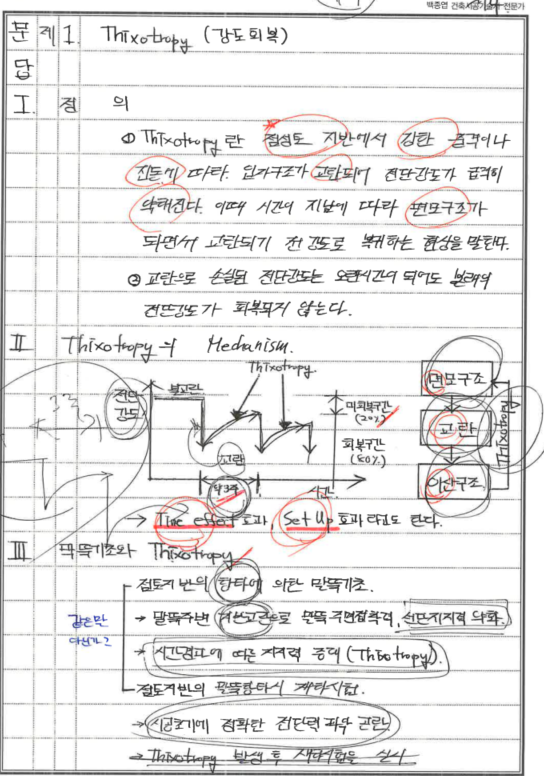 백종엽 건축시공기술사 전문가
문제 1. Thixotropy (강도회복)
답
I. 정 의
① Thixotropy란 점성토 지반에서 강한 충격이나
진동에 따라 입자구조가 교란되어 전단강도가 급격히
약해진다. 이때 시간이 지남에 따라 면모구조가
되면서 교란되기 전 강도로 복귀하는 현상을 말한다.
② 교란으로 손실된 전단강도는 오랜시간이 되어도 본래의
전단강도가 회복되지 않는다.
II Thixotropy의 Mechanism.
Thixotropy
전단
강도
불교란
교란
약3주
시간
3주
미회복구간
(20%)
회복구간
(80%)
면모구조
교란
이산구조
Thixotropy
→ Time effect 효과, Set Up 효과라고도 한다.
III 말뚝기초와 Thixotropy
점토지반의 항타에 의한 말뚝기초.
→ 말뚝주변 지반교란으로 말뚝 주면접착력, 선단지지력 약화.
같은말
→ 시간경과에 따른 지지력 증대 (Thixotropy).
점토지반의 말뚝항타시 재하시험.
→ 시공초기에 정확한 전단력 파악 곤란.
→ Thixotropy 발생 후 재하시험을 실시